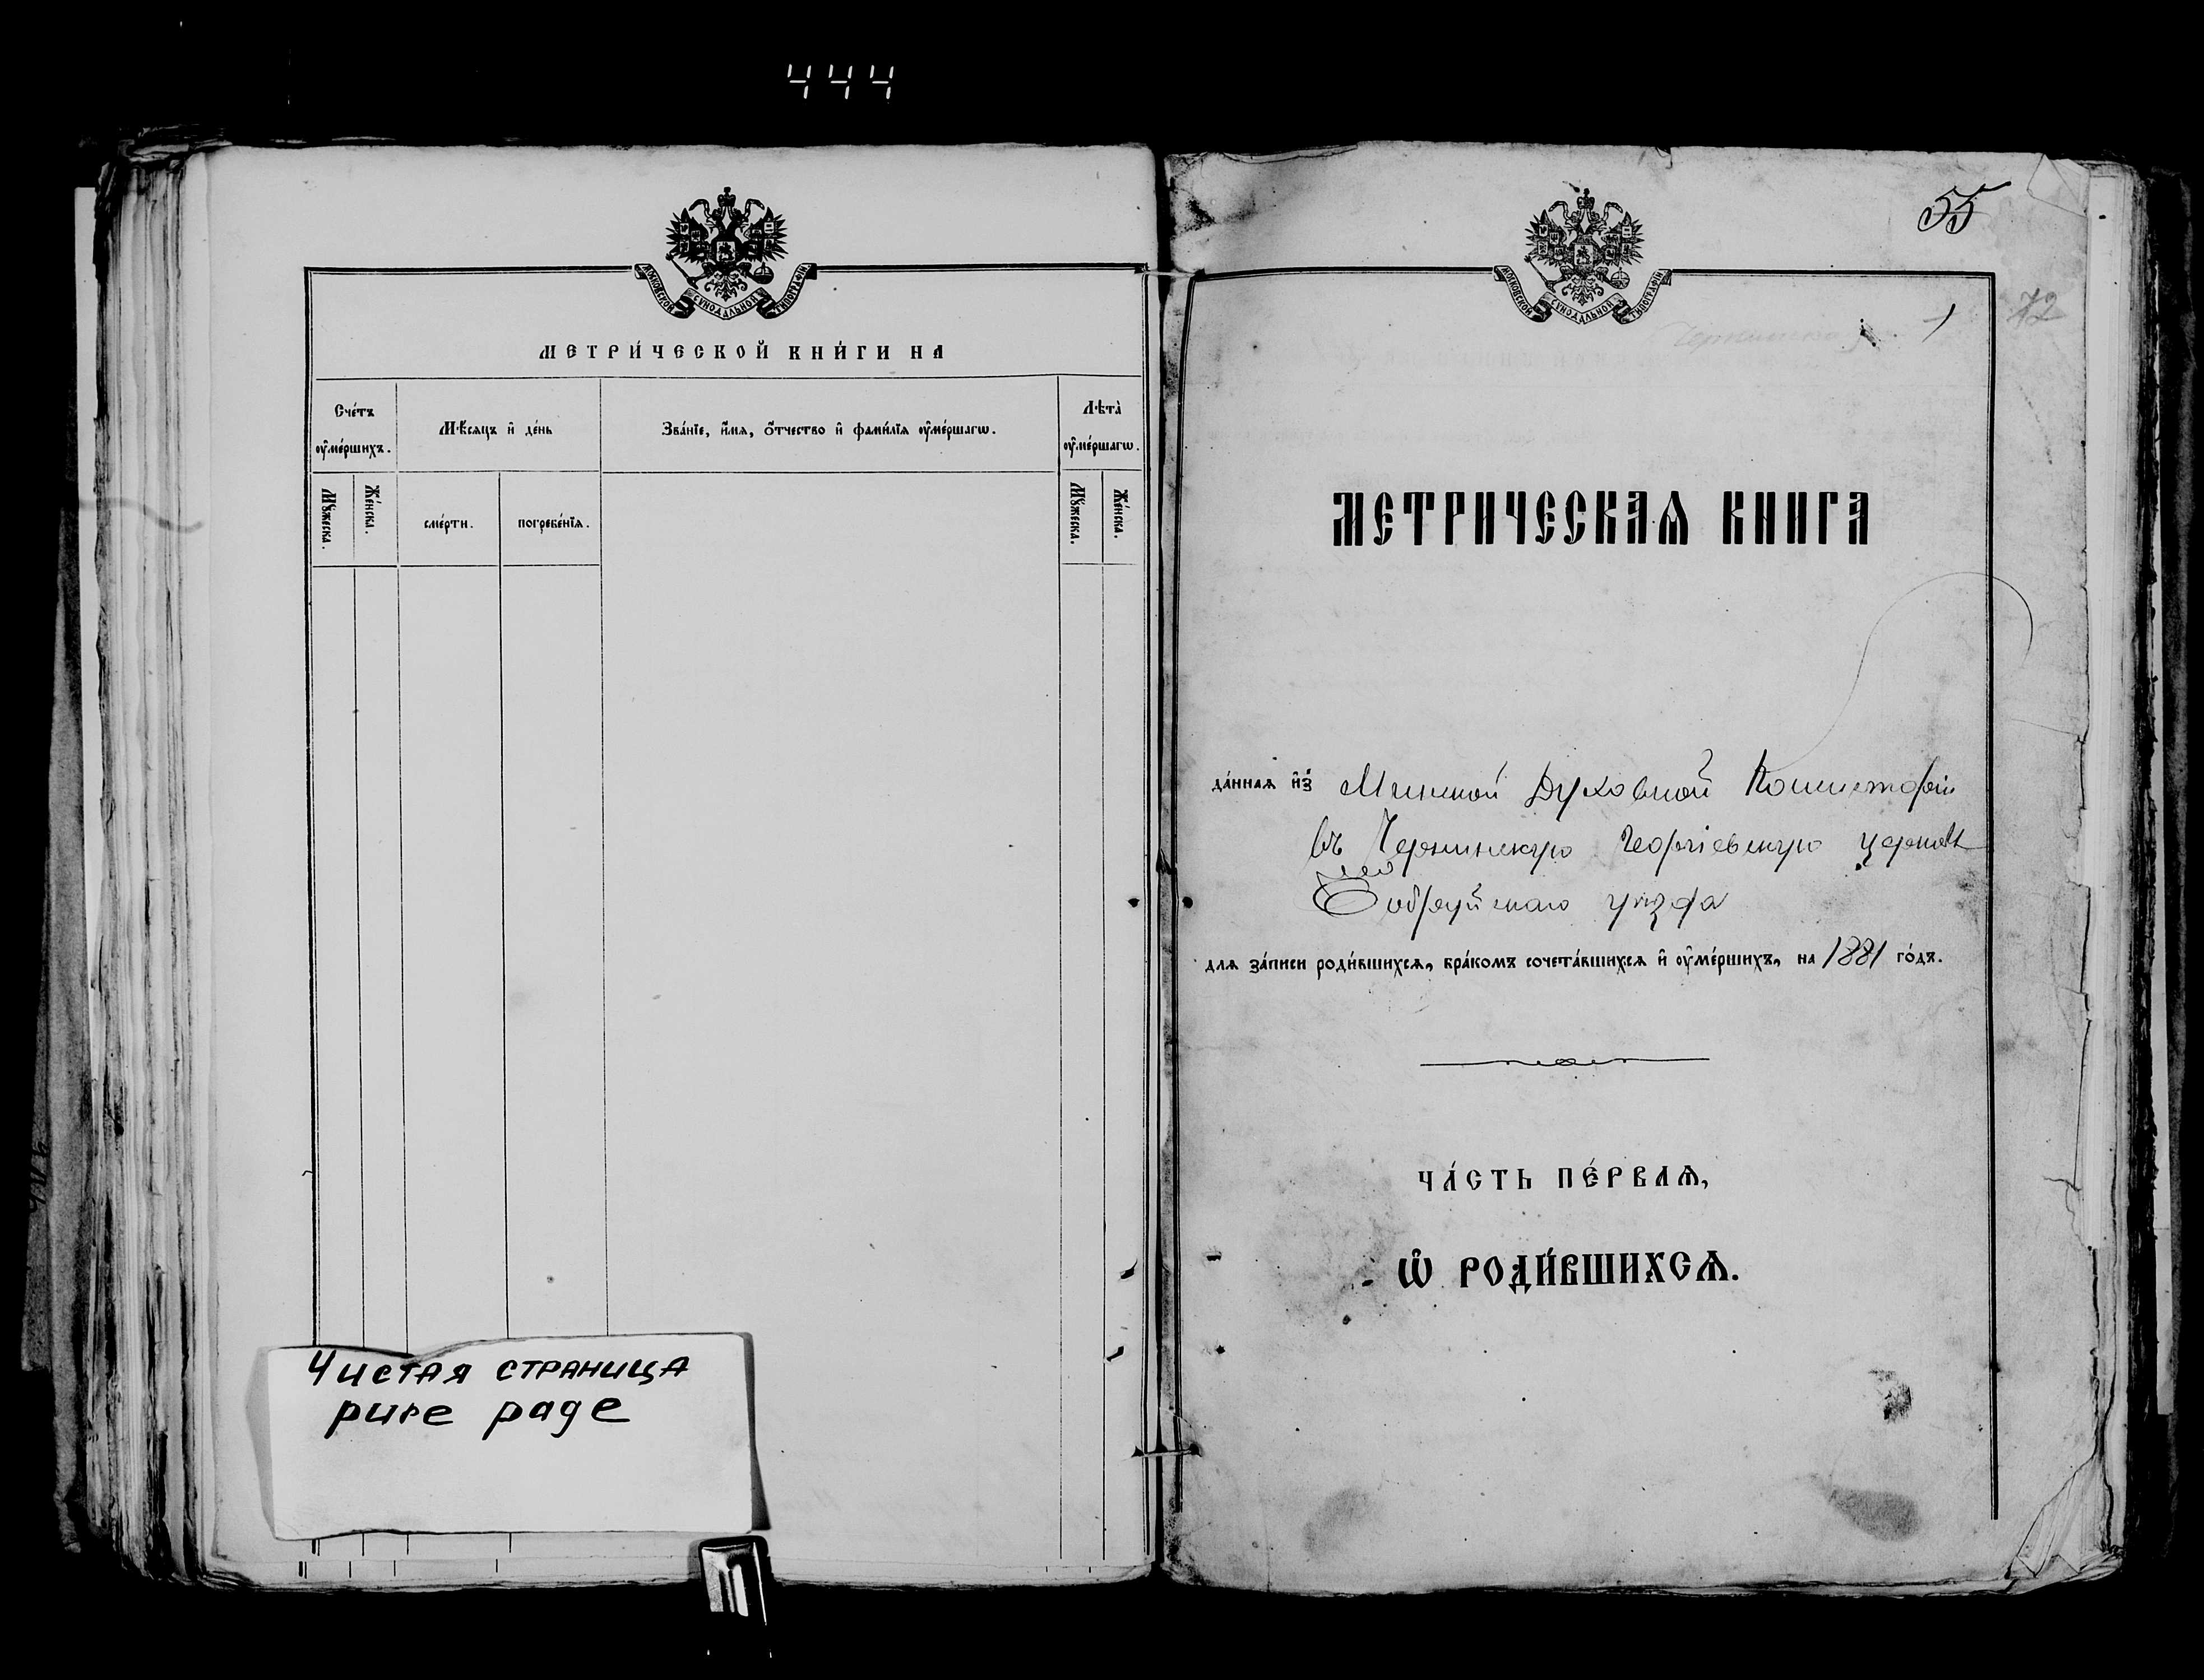 444
МОСКОВСКОЙ СѴНОДАЛЬНОЙ ТИПОГРАФІИ
МЕТРИ́ЧЕСКОЙ КНИ́ГИ НА
Сче́тъ ᲂу҆ме́ршихъ.
Мѣ́сяцъ и҆ де́нь
Зва́нїе, и҆́мѧ, ѻ҆́тчество и҆ фами́лїѧ ᲂу҆ме́ршагѡ.
Лѣта̀ ᲂу҆ме́ршагѡ.
Мꙋ́жеска.
Же́нска.
сме́рти.
погребе́нїѧ.
Мꙋ́жеска.
Же́нска.
Чистая страница
pure page
55
МОСКОВСКОЙ СѴНОДАЛЬНОЙ ТИПОГРАФІИ
72
МЕТРИЧЕСКАѦ КНИГА
да́ннаѧ и҆з̾ Минской Духовной Консисторіи
въ Чернинскую Георгіевскую церковь
Бобруйскаго уѣзда
длѧ за́писи роди́вшихсѧ, бра́комъ сочета́вшихсѧ и҆ ᲂу҆ме́ршихъ, на 1881 го́дъ.
ЧА́СТЬ ПЕ́РВАѦ,
Ѡ҆ РОДИ́ВШИХСѦ.